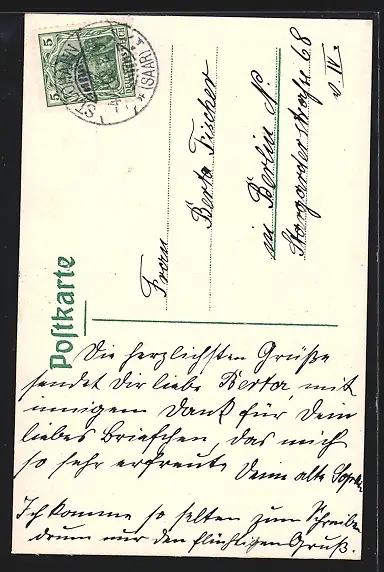 5 5
DEUTSCHES REICH
ST. JOHANN
* (SAAR) 3
Postkarte
Frau
Berta Fischer
in Berlin N.
Stargarderstraße 68
v. IV.
Die herzlichsten Grüße
sendet Dir liebe Berta, mit
innigem Dank für Dein
liebes Briefchen, das mich
so sehr erfreute Deine alte Sophie
Ich komme so selten zum Schreiben
drum nur den flüchtigen Gruß.